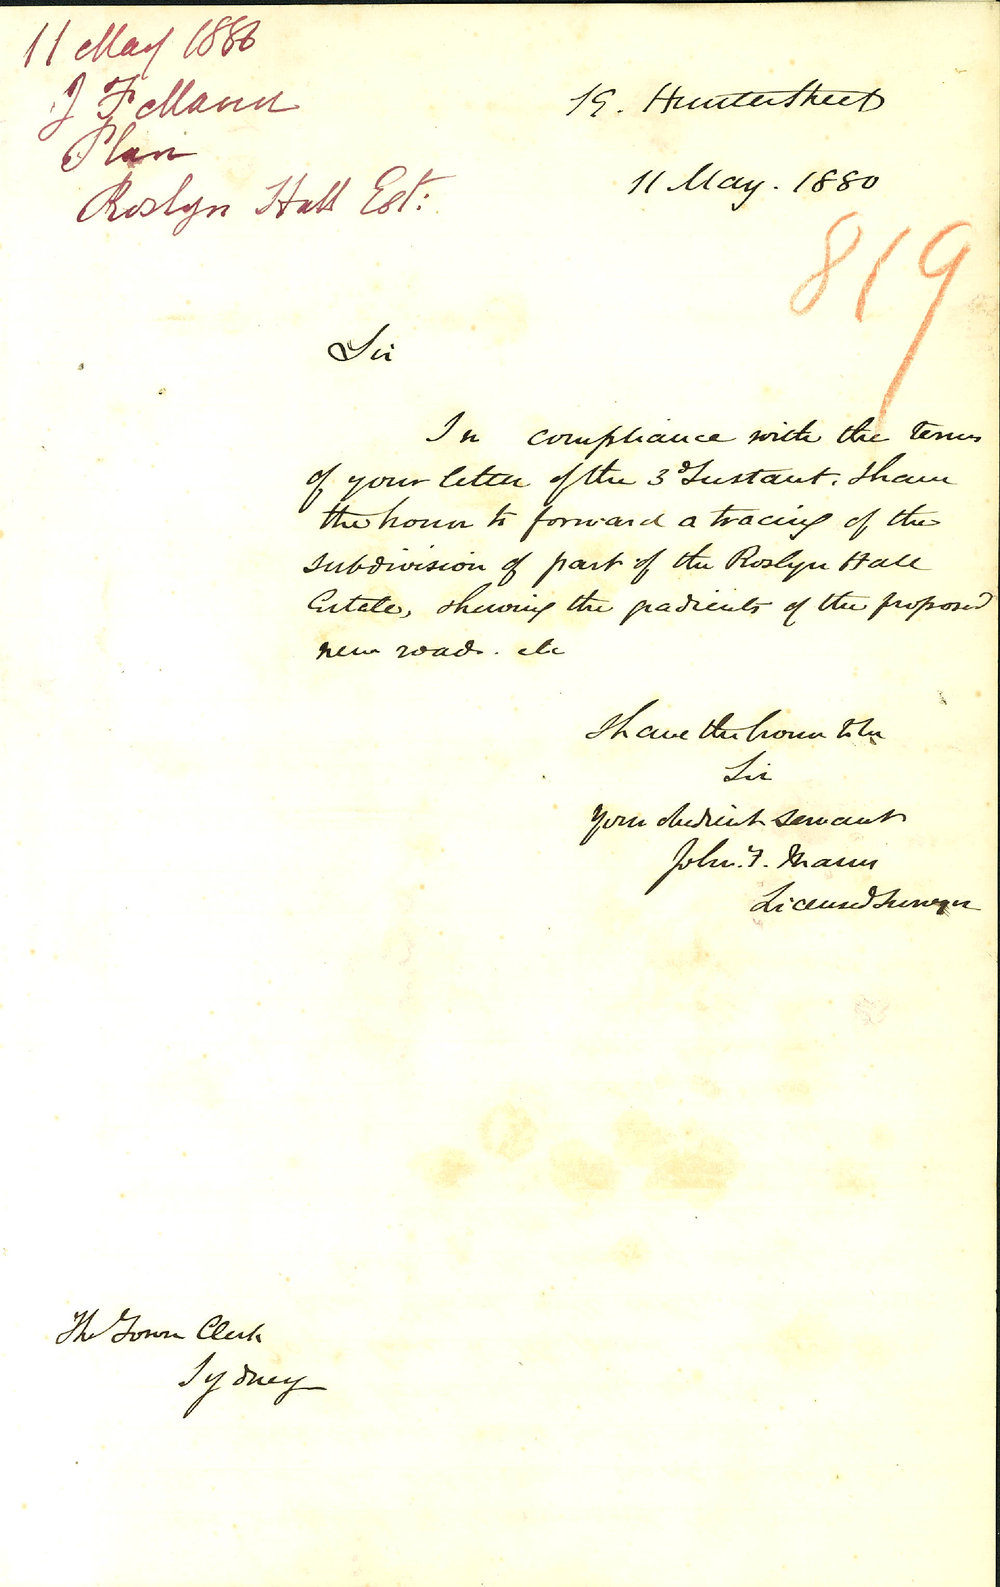 11 May 1880
J F Mann
Plan
Roslyn Hall Est:
19. Hunter Street
11 May. 1880
819
Sir
In compliance with the terms
of your letter of the 3d Instant. I have
the honor to forward a tracing of the
subdivision of part of the Roslyn Hall
Estate, shewing the gradients of the proposed
new roads. etc
I have the honor to be
Sir
Your obedient servant
John. F. Mann
Licensed Surveyor
The Town Clerk
Sydney